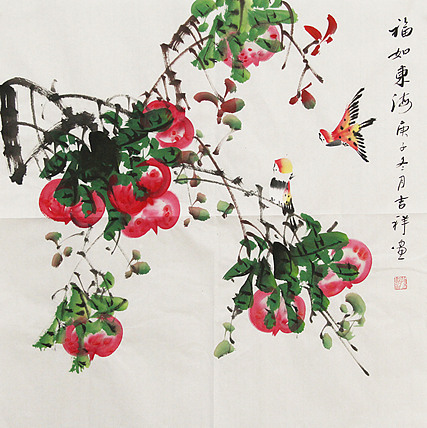 福如東海庚子冬月吉祥画